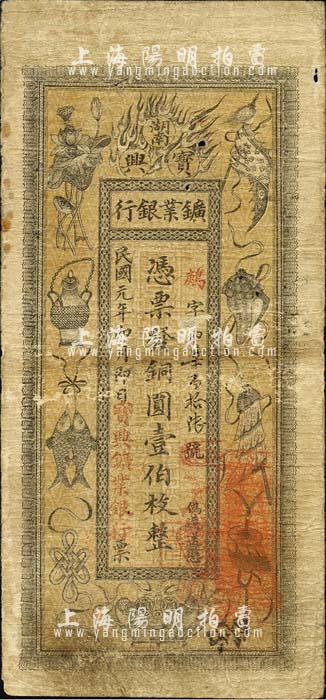 上海陽明拍賣
www.yangmingauction.com
湖南
寶興
鑛業銀行
鷓字
拾
號
憑票發銅圓壹伯枚整
民國元年
即日寶興鑛業銀行票
上海陽明拍賣
www.yangmingauction.com
上海陽明拍賣
www.yangmingauction.com